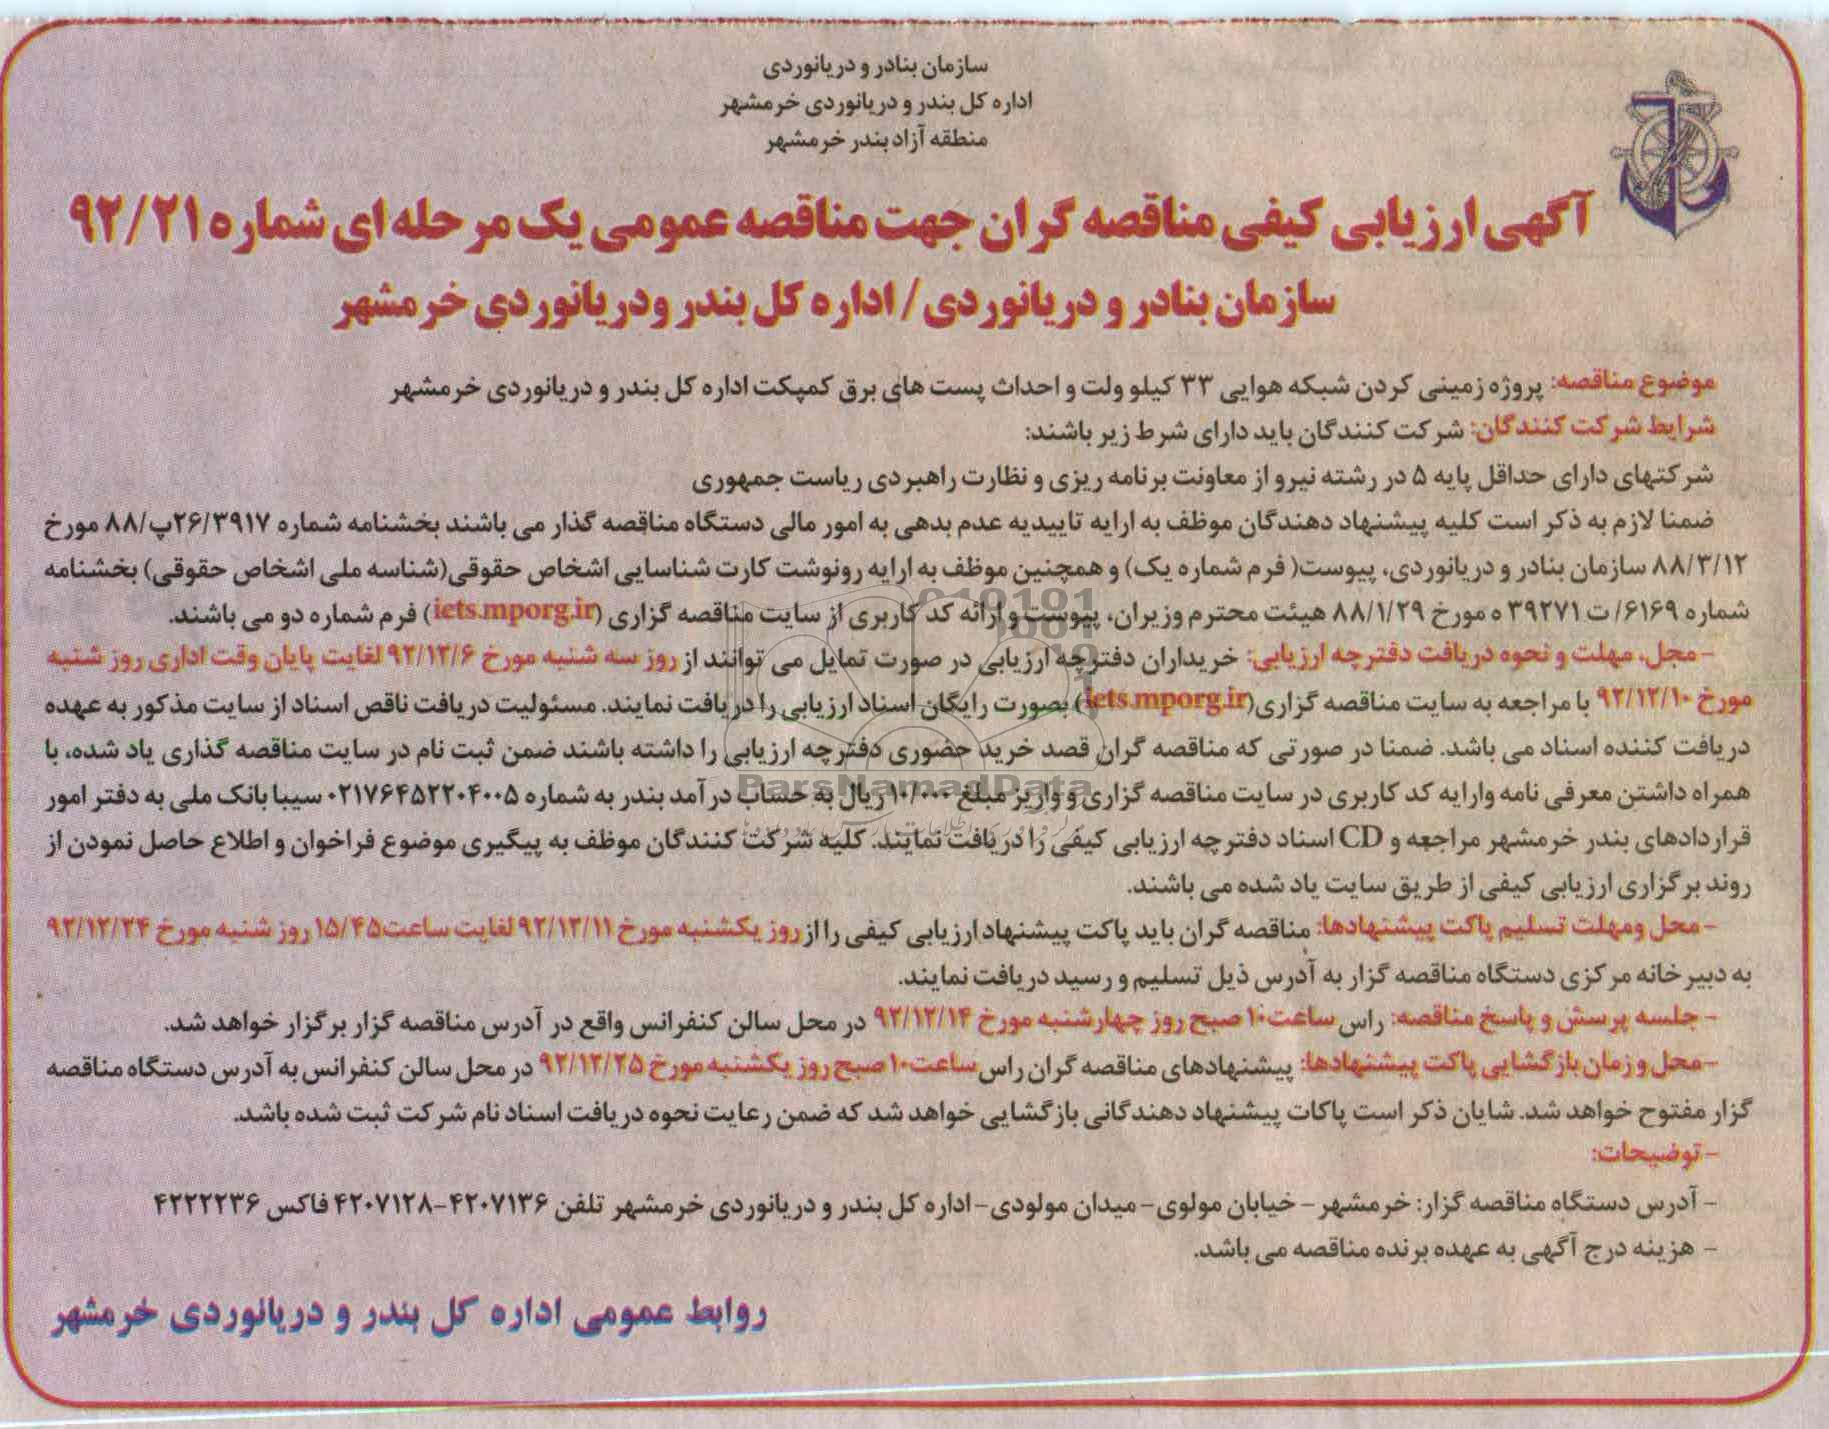 سازمان بنادر و دریانوردی
اداره کل بندر و دریانوردی خرمشهر
منطقه آزاد بندر خرمشهر
آگهی ارزیابی کیفی مناقصه گران جهت مناقصه عمومی یک مرحله ای شماره ۹۲/۲۱
سازمان بنادر و دریانوردی/ اداره کل بندر ودریانوردی خرمشهر
موضوع مناقصه: پروژه زمینی کردن شبکه هوایی ۳۳ کیلو ولت و احداث پست های برق کمپکت اداره کل بندر و دریانوردی خرمشهر
شرایط شرکت کنندگان: شرکت کنندگان باید دارای شرط زیر باشند:
شرکتهای دارای حداقل پایه ۵ در رشته نیرو از معاونت برنامه ریزی و نظارت راهبردی ریاست جمهوری
ضمنا لازم به ذکر است کلیه پیشنهاد دهندگان موظف به ارایه تاییدیه عدم بدهی به امور مالی دستگاه مناقصه گذار می باشند بخشنامه شماره ۲۶/۳۹۱۷پ/۸۸ مورخ
۸۸/۳/۱۲ سازمان بنادر و دریانوردی، پیوست( فرم شماره یک) و همچنین موظف به ارایه رونوشت کارت شناسایی اشخاص حقوقی(شناسه ملی اشخاص حقوقی) بخشنامه
شماره ۶۱۶۹/ ت ۳۹۲۷۱ ه مورخ ۸۸/۱/۲۹ هیئت محترم وزیران، پیوست و ارائه کد کاربری از سایت مناقصه گزاری (iets.mporg.ir) فرم شماره دو می باشند.
- مجل، مهلت و نحوه دریافت دفترچه ارزیابی: خریداران دفترچه ارزیابی در صورت تمایل می توانند از روز سه شنبه مورخ ۹۲/۱۲/۶ لغایت پایان وقت اداری روز شنبه
مورخ ۹۲/۱۲/۱۰ با مراجعه به سایت مناقصه گزاری(iets.mporg.ir) بصورت رایگان اسناد ارزیابی را دریافت نمایند. مسئولیت دریافت ناقص اسناد از سایت مذکور به عهده
دریافت کننده اسناد می باشد. ضمنا در صورتی که مناقصه گران قصد خرید حضوری دفترچه ارزیابی را داشته باشند ضمن ثبت نام در سایت مناقصه گذاری یاد شده، با
همراه داشتن معرفی نامه وارایه کد کاربری در سایت مناقصه گزاری و واریز مبلغ ۱۰/۰۰۰ ریال به حساب درآمد بندر به شماره ۰۲۱۷۶۴۵۲۲۰۴۰۰۵ سیبا بانک ملی به دفتر امور
قراردادهای بندر خرمشهر مراجعه و CD اسناد دفترچه ارزیابی کیفی را دریافت نمایند. کلیه شرکت کنندگان موظف به پیگیری موضوع فراخوان و اطلاع حاصل نمودن از
روند برگزاری ارزیابی کیفی از طریق سایت یاد شده می باشند.
- محل ومهلت تسلیم پاکت پیشنهادها: مناقصه گران باید پاکت پیشنهاد ارزیابی کیفی را از روز یکشنبه مورخ ۹۲/۱۲/۱۱ لغایت ساعت۱۵/۴۵ روز شنبه مورخ ۹۲/۱۲/۲۴
به دبیرخانه مرکزی دستگاه مناقصه گزار به آدرس ذیل تسلیم و رسید دریافت نمایند.
- جلسه پرسش و پاسخ مناقصه: راس ساعت۱۰ صبح روز چهارشنبه مورخ ۹۲/۱۲/۱۴ در محل سالن کنفرانس واقع در آدرس مناقصه گزار برگزار خواهد شد.
-محل و زمان بازگشایی پاکت پیشنهادها: پیشنهادهای مناقصه گران راس ساعت۱۰ صبح روز یکشنبه مورخ ۹۲/۱۲/۲۵ در محل سالن کنفرانس به آدرس دستگاه مناقصه
گزار مفتوح خواهد شد. شایان ذکر است پاکات پیشنهاد دهندگانی بازگشایی خواهد شد که ضمن رعایت نحوه دریافت اسناد نام شرکت ثبت شده باشد.
- توضیحات:
- آدرس دستگاه مناقصه گزار: خرمشهر - خیابان مولوی- میدان مولودی- اداره کل بندر و دریانوردی خرمشهر تلفن ۴۲۰۷۱۳۶-۴۲۰۷۱۲۸ فاکس ۴۲۲۲۲۳۶
- هزینه درج آگهی به عهده برنده مناقصه می باشد.
روابط عمومی اداره کل بندر و دریانوردی خرمشهر
ParsNamadData